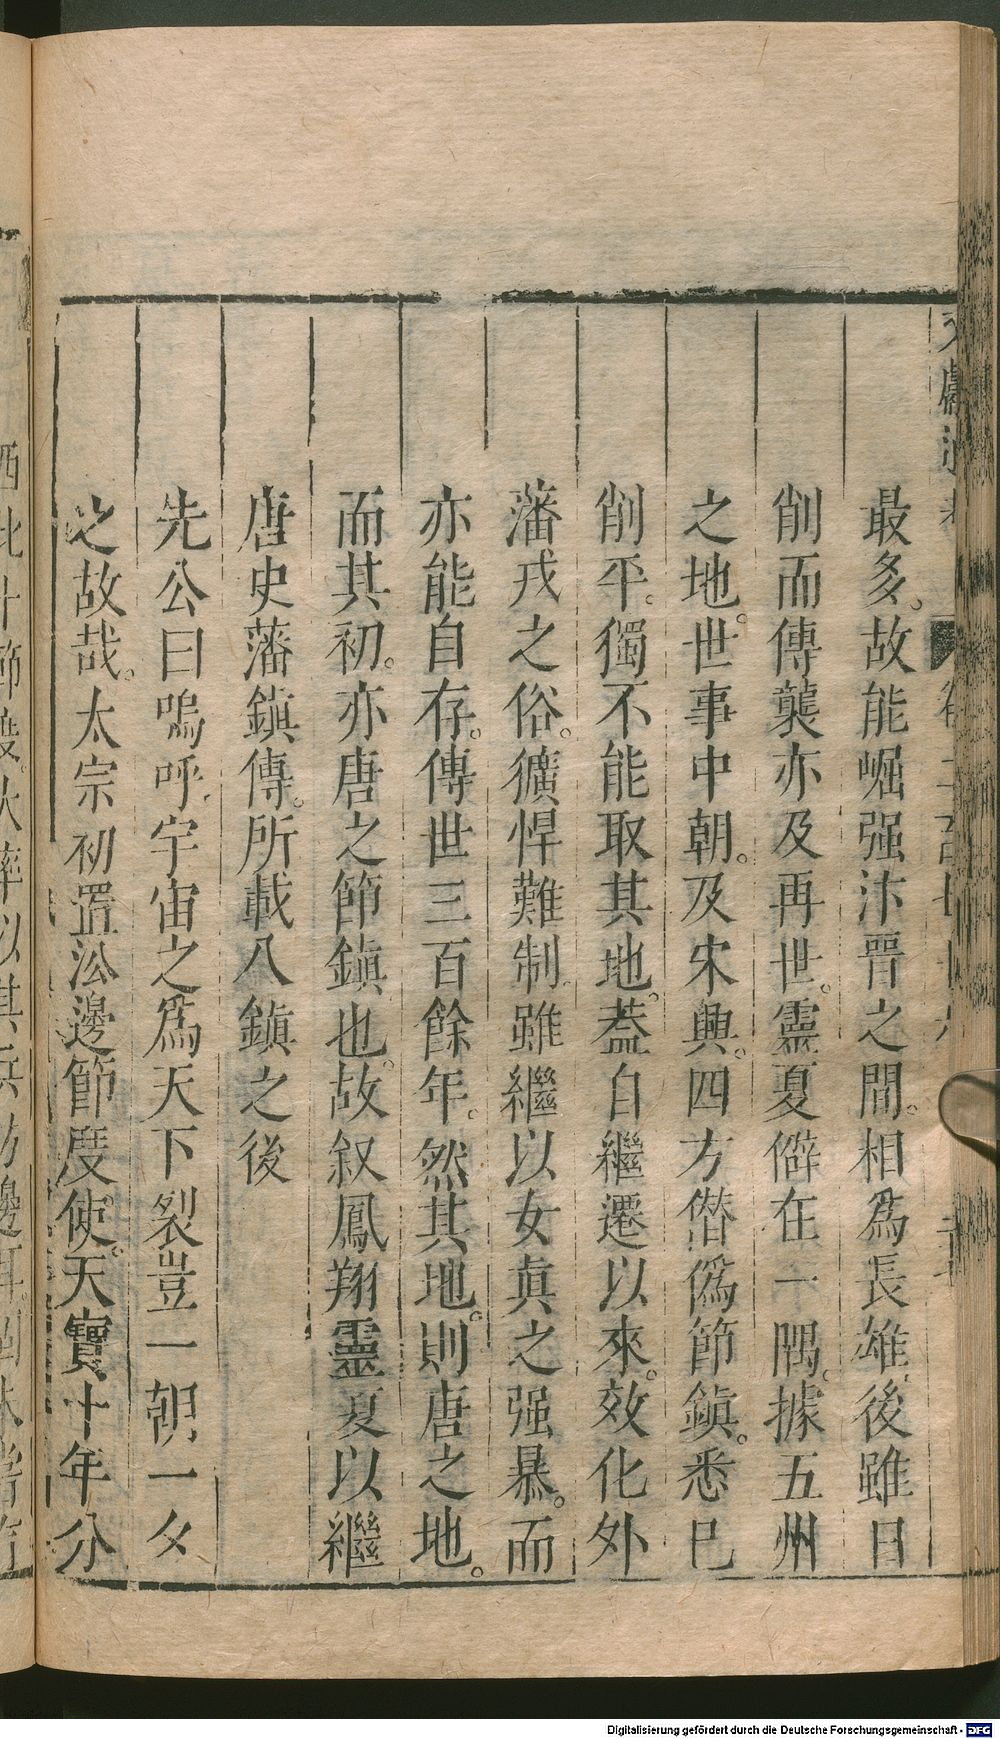 最多。故能崛强汴晋之間。相爲長雄後雖日
削而傳襲亦及再世。靈夏僻在一隅。據五州
之地。世事中朝。及宋興。四方僣僞節鎭。悉已
削平。獨不能取其地。葢自繼遷以來。效化外
藩戎之俗。獷悍難制。雖繼以女真之强暴。而
亦能自存。傳世三百餘年。然其地。則唐之地。
而其初。亦唐之節鎭也。故叙鳳翔靈夏以繼
唐史藩鎭傳。所載八鎭之後
先公曰嗚呼。宇宙之爲天下裂豈一朝一夕
之故哉。太宗初置沿邊節度使。天寶十年分
Digitalisierung gefördert durch die Deutsche Forschungsgemeinschaft - DFG